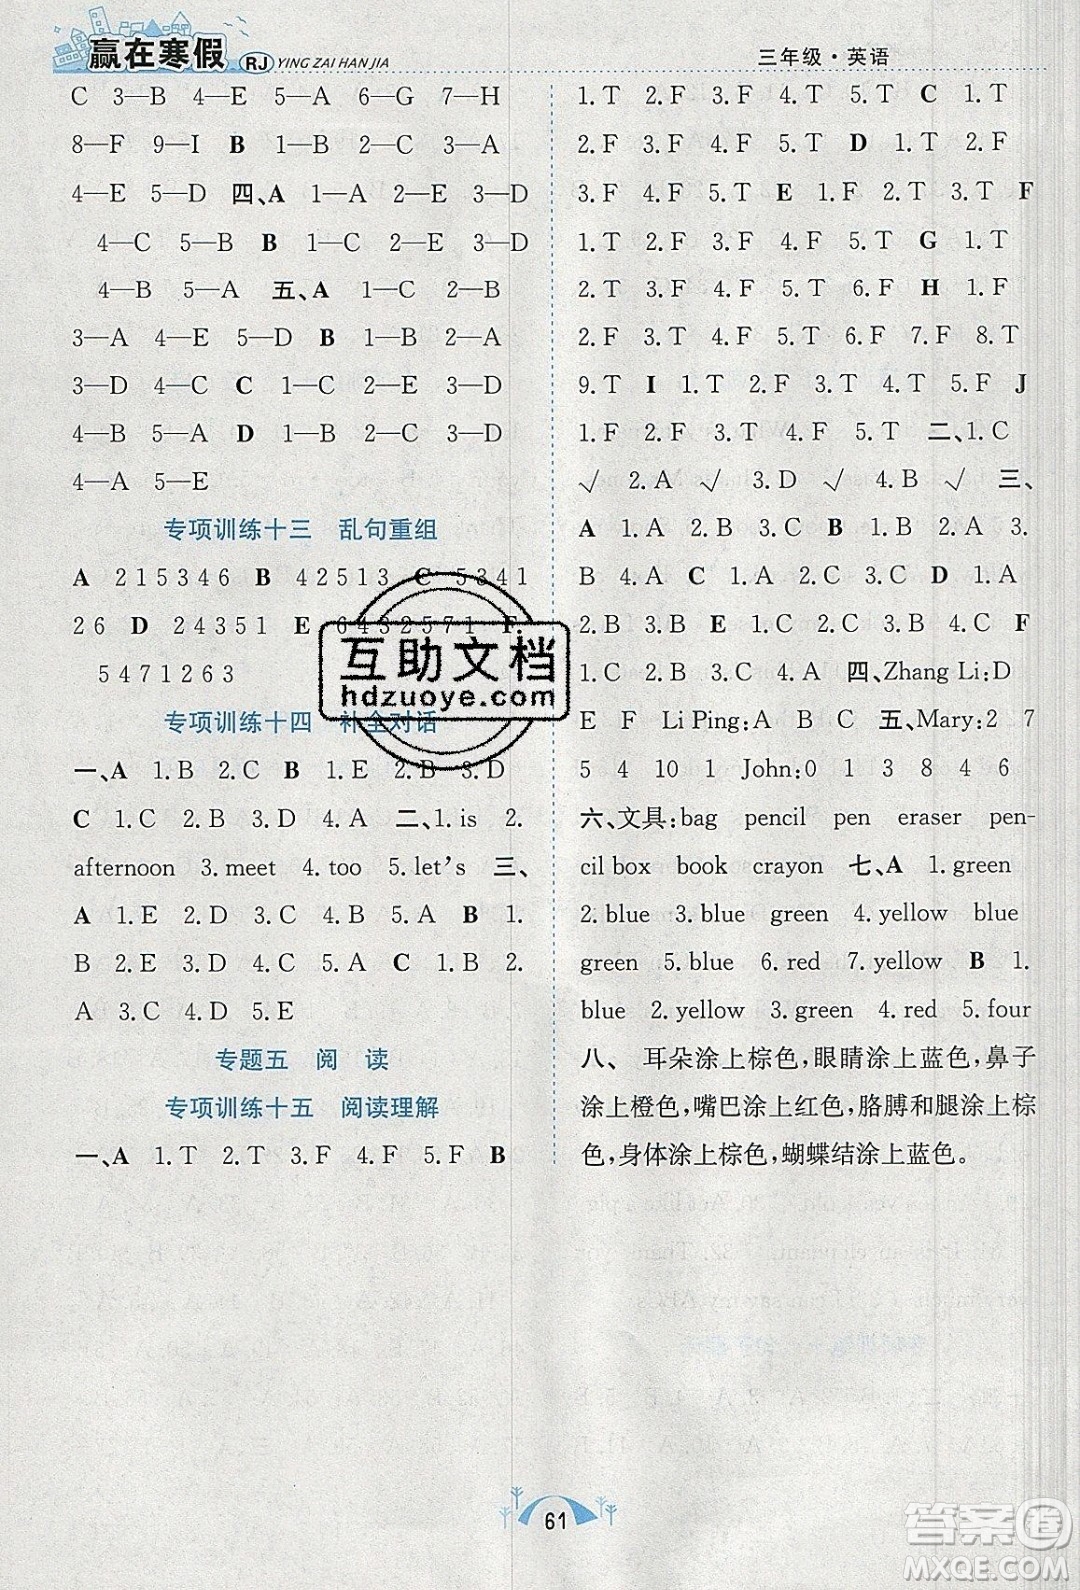 赢在寒假 RJ YING ZAI HAN JIA
三年级·英语
C 3—B 4—E 5—A 6—G 7—H
8—F 9—I B 1—B 2—C 3—A
4—E 5—D 四、A 1—A 2—E 3—D
4—C 5—B B 1—C 2—E 3—D
4—B 5—A 五、A 1—C 2—B
3—A 4—E 5—D B 1—B 2—A
3—D 4—C C 1—C 2—E 3—D
4—B 5—A D 1—B 2—C 3—D
4—A 5—E
专项训练十三 乱句重组
A 2 1 5 3 4 6 B 4 2 5 1 3 C 5 3 4 1
2 6 D 2 4 3 5 1 E 6 4 3 2 5 7 1 F
5 4 7 1 2 6 3
专项训练十四 补全对话
一、A 1.B 2.C B 1.E 2.B 3.D
C 1.C 2.B 3.D 4.A 二、1.is 2.
afternoon 3.meet 4.too 5.let's 三、
A 1.E 2.D 3.C 4.B 5.A B 1.
B 2.E 3.D 4.A 5.C C 1.B 2.
A 3.C 4.D 5.E
专题五 阅 读
专项训练十五 阅读理解
一、A 1.T 2.T 3.F 4.F 5.F B
1.T 2.F 3.F 4.T 5.T C 1.T
2.F 3.F 4.T 5.T D 1.T 2.F
3.F 4.F 5.T E 1.F 2.T 3.T F
1.T 2.F 3.F 4.T 5.T G 1.T
2.T 3.F 4.T 5.F 6.F H 1.F
2.F 3.T 4.T 5.F 6.F 7.F 8.T
9.T I 1.T 2.F 3.T 4.T 5.F J
1.F 2.F 3.T 4.F 5.T 二、1.C
√ 2.A √ 3.D √ 4.B √ 三、
A 1.A 2.A 3.C B 1.A 2.A 3.
B 4.A C 1.A 2.A 3.C D 1.A
2.B 3.B E 1.C 2.B 3.C 4.C F
1.C 2.B 3.C 4.A 四、Zhang Li:D
E F Li Ping:A B C 五、Mary:2 7
5 4 10 1 John:0 1 3 8 4 6
六、文具:bag pencil pen eraser pen-
cil box book crayon 七、A 1.green
2.blue 3.blue green 4.yellow blue
green 5.blue 6.red 7.yellow B 1.
blue 2.yellow 3.green 4.red 5.four
八、 耳朵涂上棕色,眼睛涂上蓝色,鼻子
涂上橙色,嘴巴涂上红色,胳膊和腿涂上棕
色,身体涂上棕色,蝴蝶结涂上蓝色。
互助文档
hdzuoye.com
61
答案圈
MXQE.COM